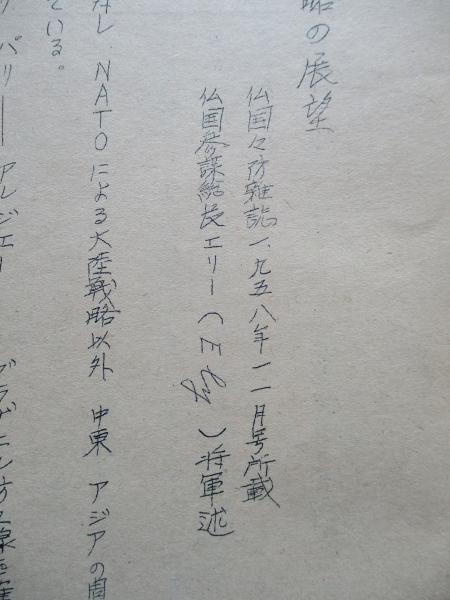 略の展望
仏国々防雑誌一九五八年一一月号所載
仏国参謀総長エリー(Ely)将軍述
なし NATOによる大陸戦略以外 中東 アジアの
ている。
パリ──アルジェリ